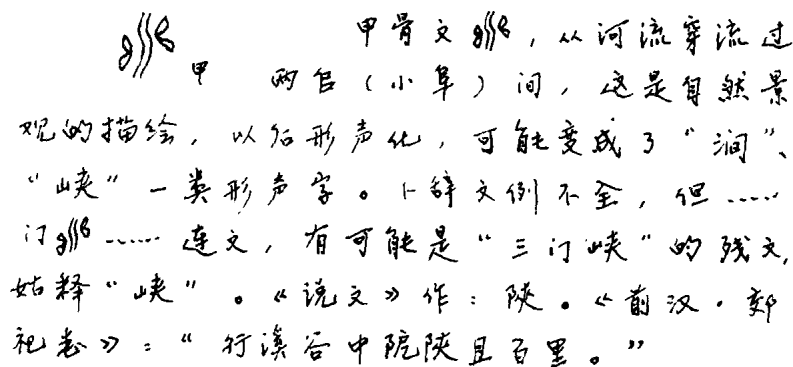 甲 甲骨文，从河流穿流过
两𠂤（小阜）间，这是自然景
观的描绘，以后形声化，可能变成了“涧”、
“峡”一类形声字。卜辞文例不全，但……
门……连文，有可能是“三门峡”的残文，
姑释“峡”。《说文》作：陕。《前汉·郊
祀志》：“行溪谷中阸陕且百里。”